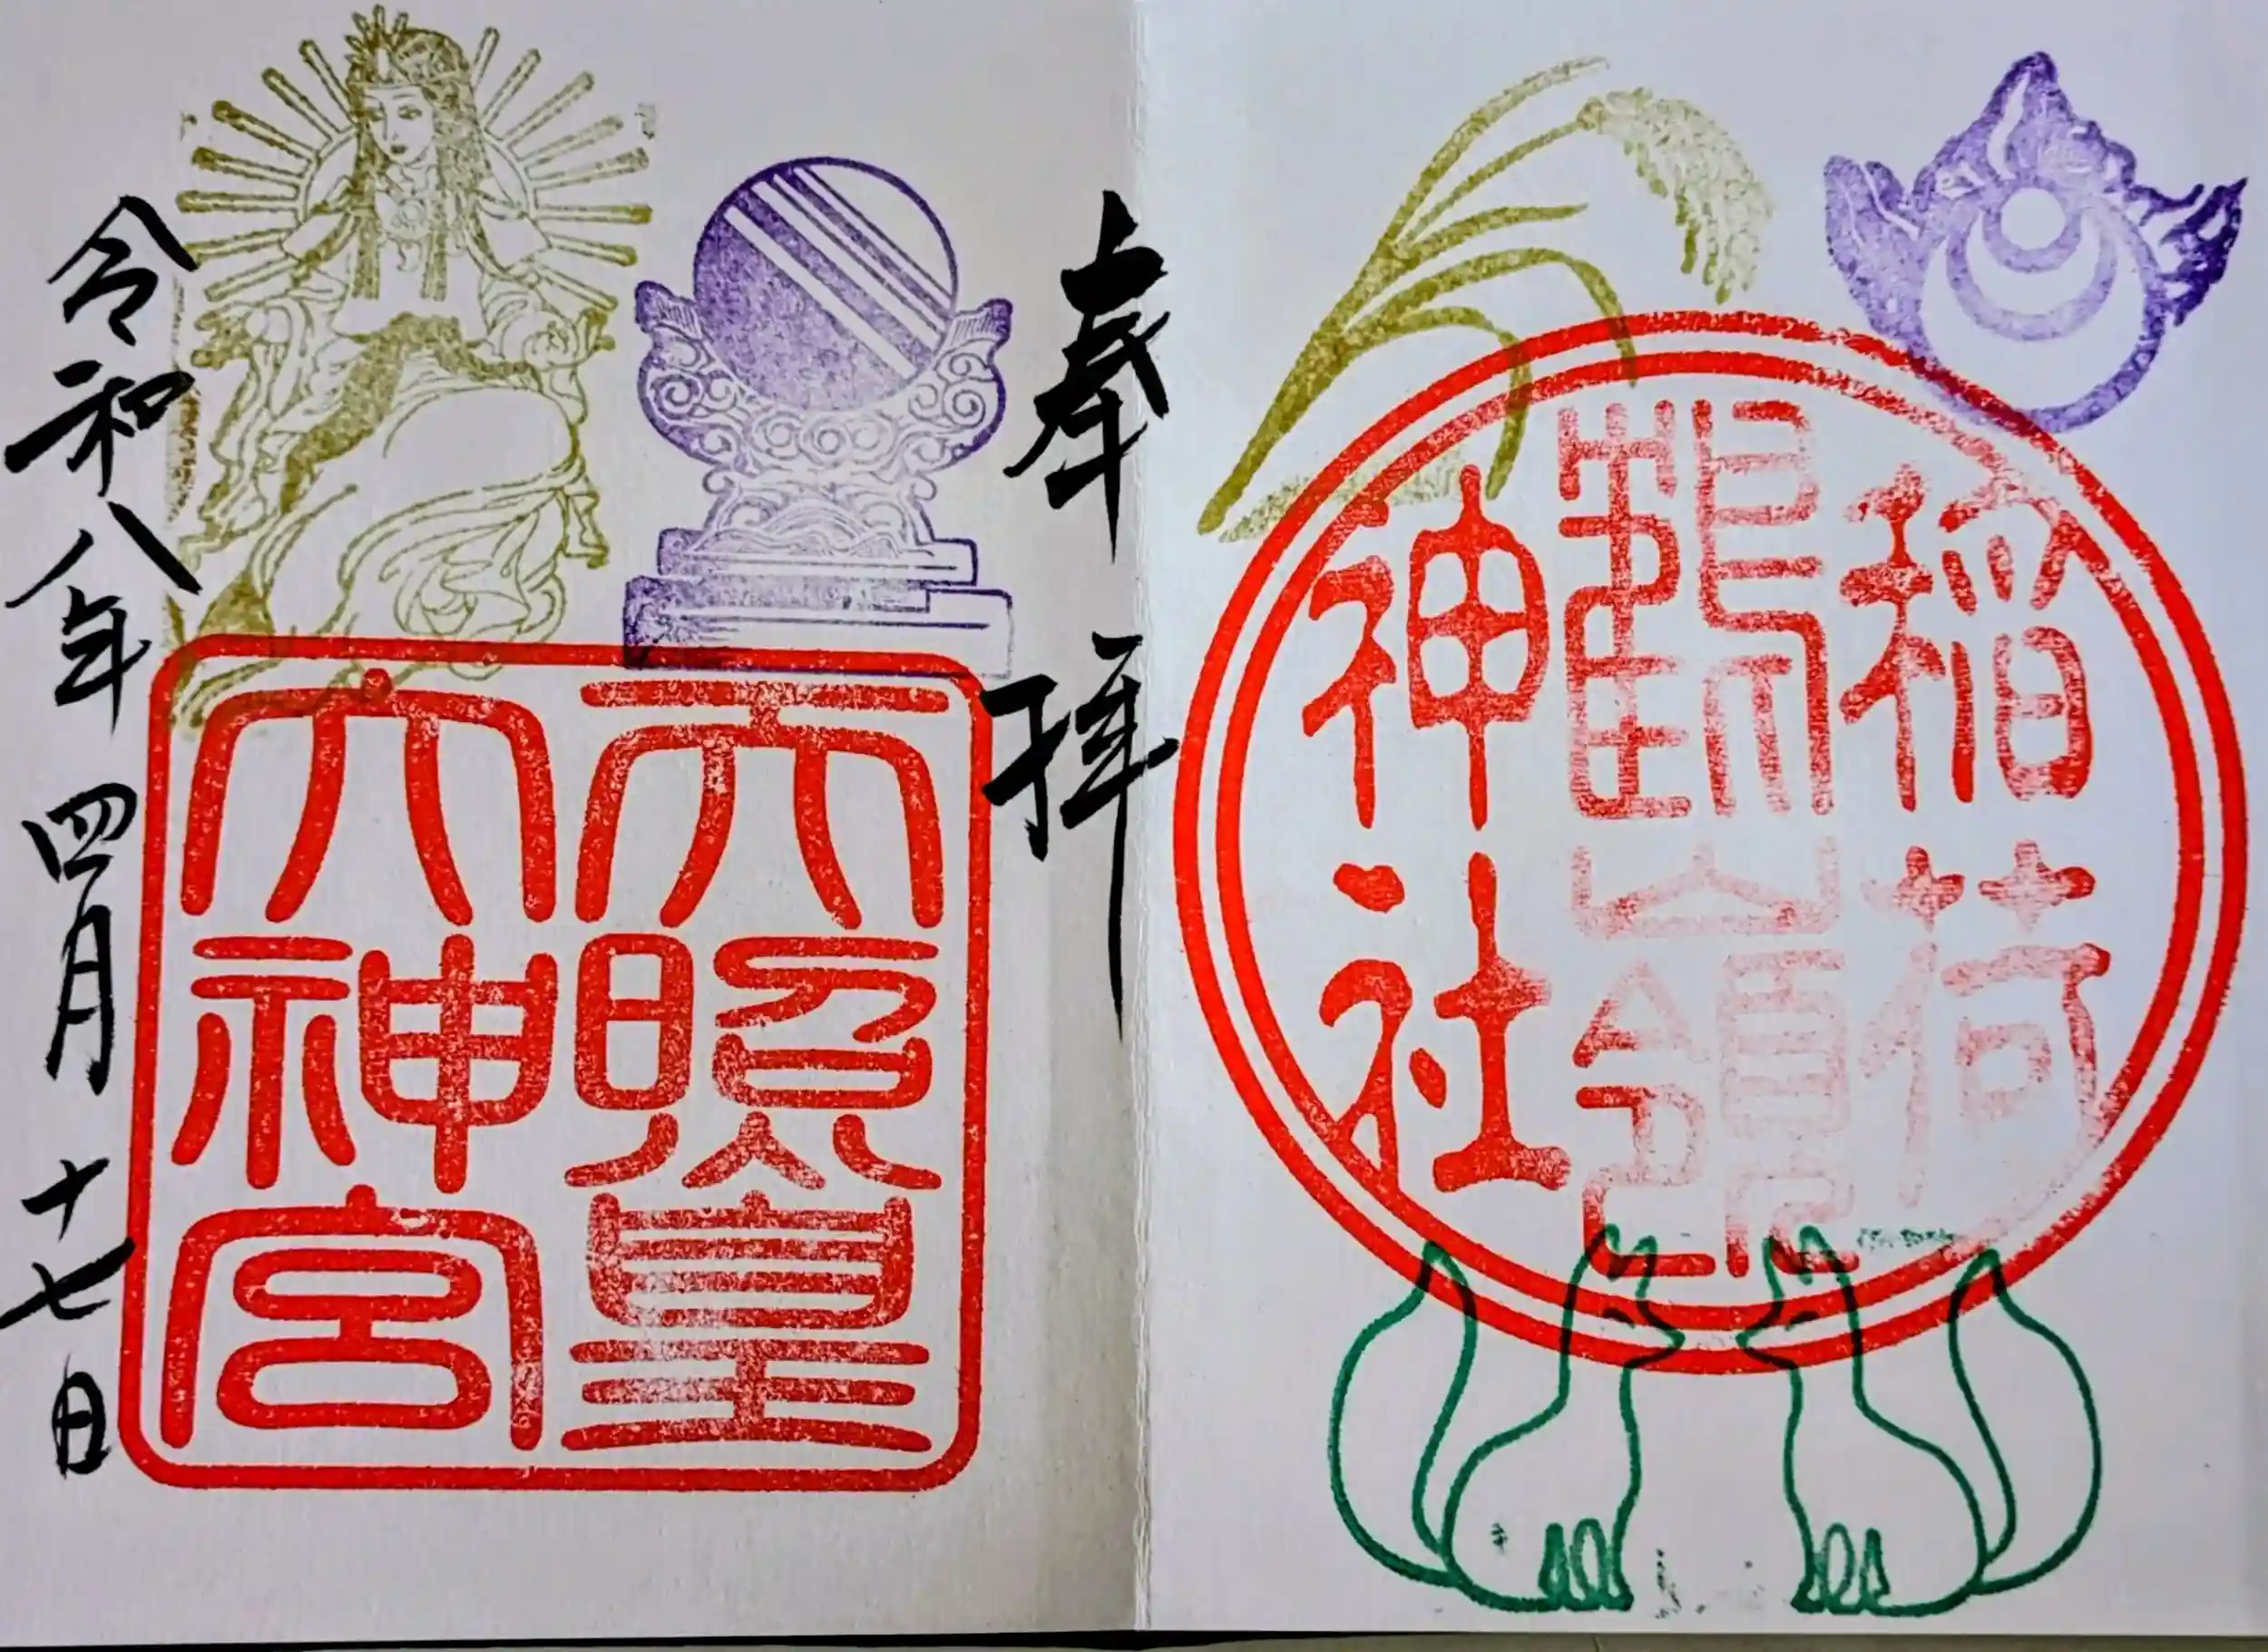 稲荷
鶴嶺
神社
奉拝
天照皇
大神宮
令和八年四月十七日